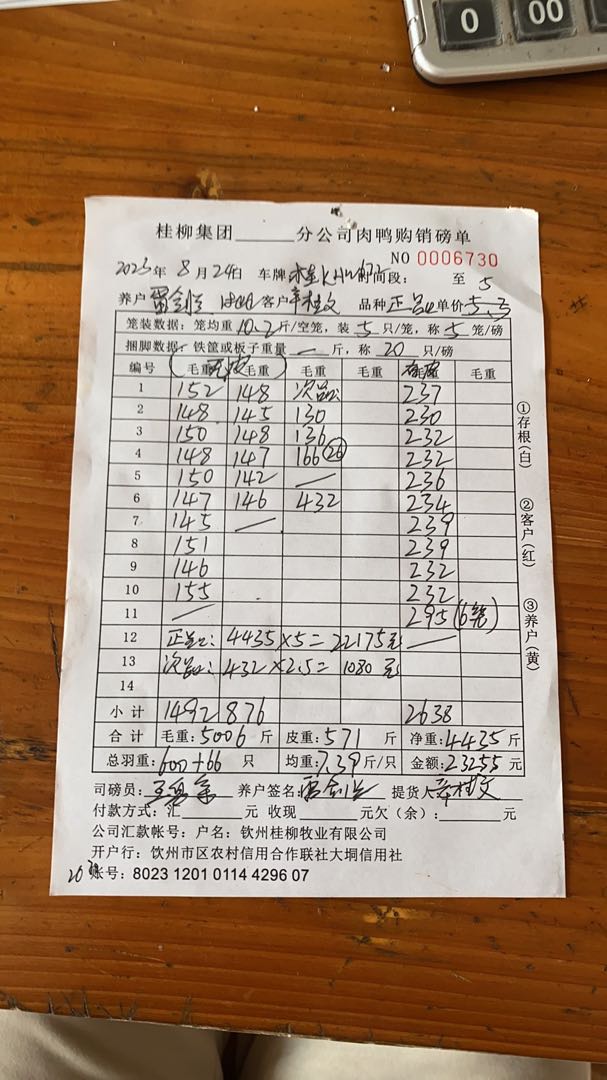 0 00
桂柳集团______分公司肉鸭购销磅单
NO 0006730
2023年 8月24日 车牌 时间段: 至 5
养户 客户 品种 正品 单价 5.3
笼装数据: 笼均重 10.2 斤/空笼, 装 5 只/笼, 称 5 笼/磅
捆脚数据: 铁筐或板子重量 — 斤, 称 20 只/磅
编号 毛重 毛重 毛重 毛重 毛重
1 152 148 次品 237
2 148 145 130 230
3 150 148 136 232
4 148 147 166 (26) 232
5 150 142 — 236
6 147 146 432 234
7 145 — 239
8 151 239
9 146 232
10 155 232
11 — 295 (6笼)
12 正品: 4435×5=22175元 —
13 次品: 432×2.5=1080元
14
小计 1492 876 2638
合计 毛重: 5006 斤 皮重: 571 斤 净重: 4435 斤
总羽重: 600+66 只 均重: 7.39 斤/只 金额: 23255 元
司磅员: 养户签名: 提货人
付款方式: 汇______元 收现______元欠(余): ______元
公司汇款帐号: 户名: 钦州桂柳牧业有限公司
开户行: 饮州市区农村信用合作联社大垌信用社
帐号: 8023 1201 0114 4296 07
①存根(白)
②客户(红)
③养户(黄)